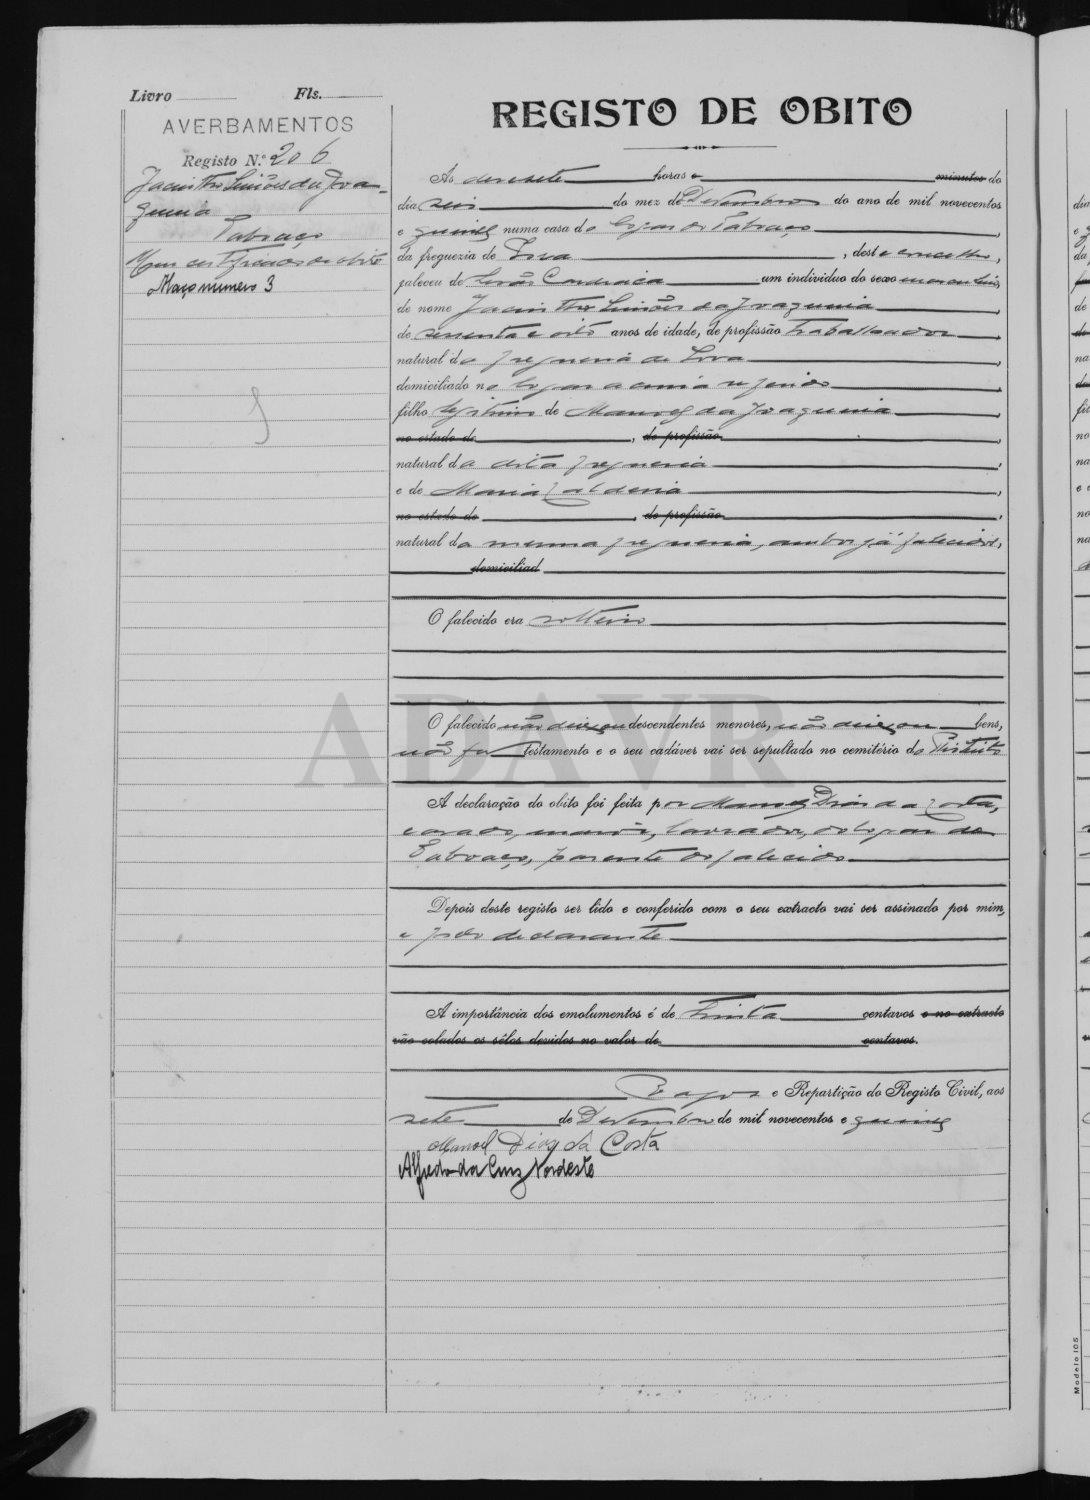 Livro Fls.
AVERBAMENTOS
Registo N.º 206
Jacintho Simões da Joa-
quina
Tabuaço
Um certificado de obito
Maço numero 3
REGISTO DE OBITO
Às dezesete horas e minutos do
dia seis do mez de Dezembro do ano de mil novecentos
e quinze numa casa do logar de Tabuaço
da freguezia de Sosa, deste concelho,
faleceu de lesão Cardiaca um individuo do sexo masculino,
de nome Jacintho Simões da Joaquina
de oito anos de idade, de profissão trabalhador
natural da freguesia de Sosa
domiciliado no logar acima referido
filho legitimo de Manoel da Joaquina
no estado de, de profissão
natural da dita freguesia
e de Maria Caldeira
no estado de, de profissão
natural da mesma freguesia, ambos já falecidos,
domiciliad
O falecido era solteiro
ADAVR
O falecido não deixou descendentes menores, não deixou bens,
não fez testamento e o seu cadáver vai ser sepultado no cemitério do
A declaração do obito foi feita por Manoel Dias da Costa,
casado, maior, lavrador, do logar de
Tabuaço, parente do falecido
Depois deste registo ser lido e conferido com o seu extracto vai ser assinado por mim,
e pelo declarante
A importância dos emolumentos é de trinta centavos e no extracto
vão colados os sêlos devidos no valor de centavos.
Vagos e Repartição do Registo Civil, aos
sete de Dezembro de mil novecentos e quinze
Manoel Dias da Costa
Alfredo da Cruz Nordeste
Modelo 105